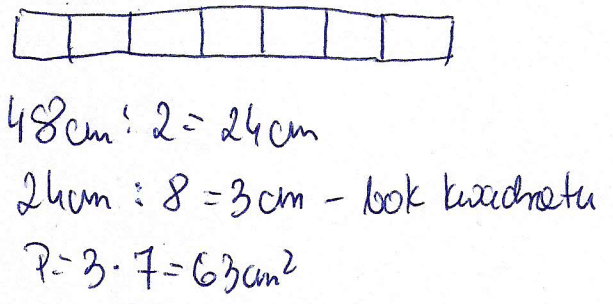 48cm : 2 = 24cm
24cm : 8 = 3cm - bok kwadratu
P = 3 · 7 = 63cm²